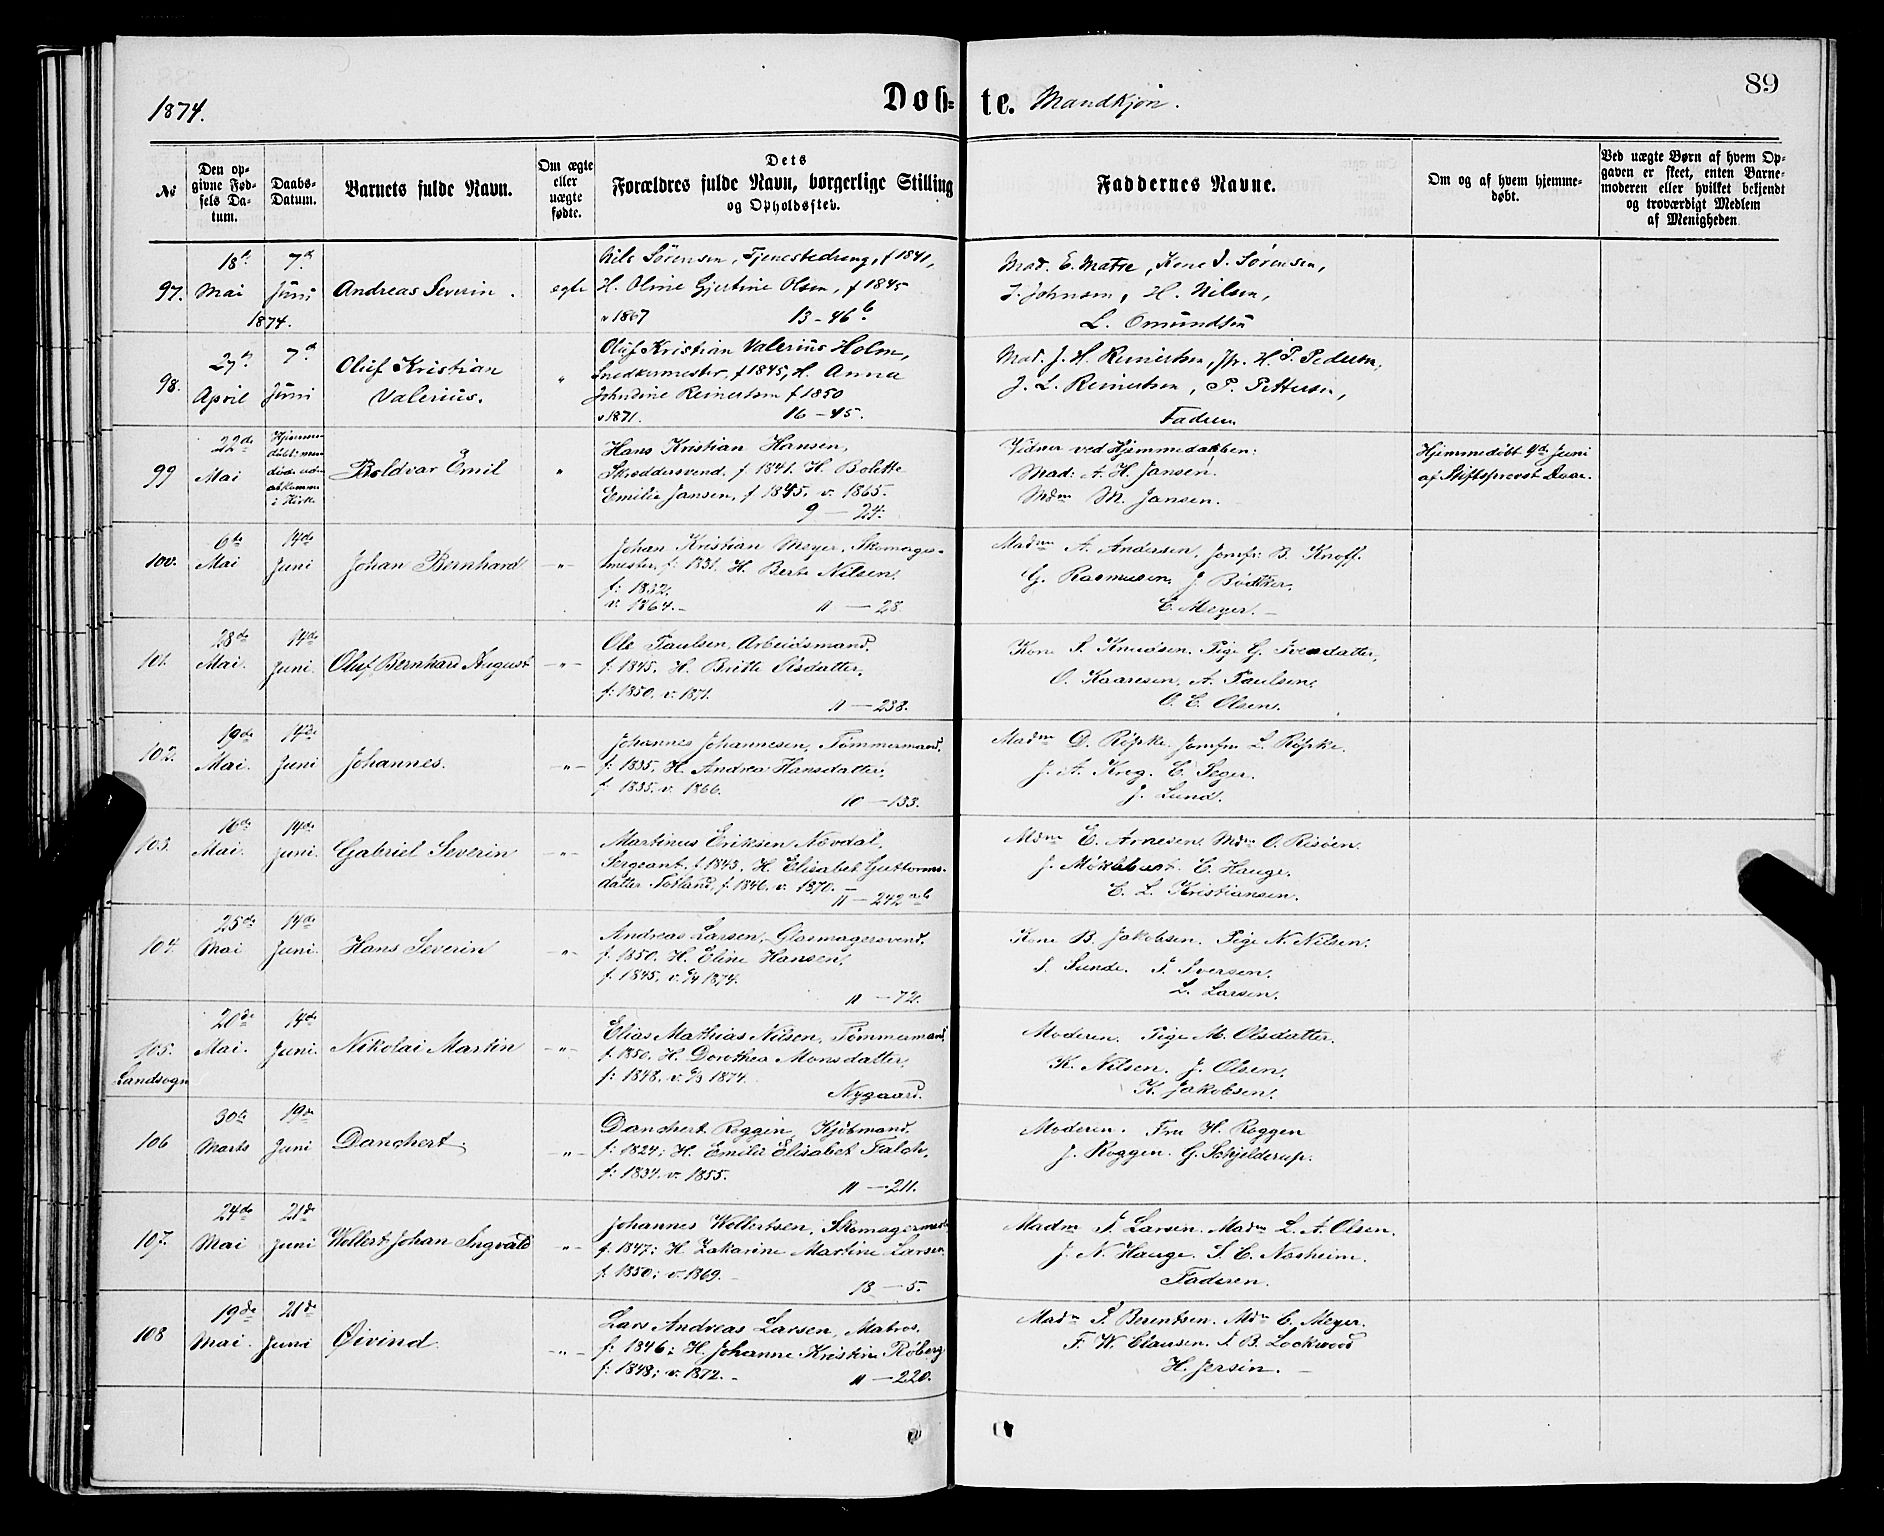 1874.
Døb-te. Mandkjøn.
89
No
Den op-
givne Fød-
sels Da-
tum.
Daabs-
Datum.
Barnets fulde Navn.
Om ægte
eller
uægte
fødte.
Dets
Forældres fulde Navn, borgerlige Stilling
og Opholdssted.
Faddernes Navne.
Om og af hvem hjemme-
døbt.
Ved uægte Børn af hvem Op-
gaven er skeet, enten Barne-
moderen eller hvilket bekjendt
og troværdigt Medlem
af Menigheden
97.
18de
Mai
7de
Juni
1874.
Andreas Severin.
egte
Nils Sörensen, Tjenestedreng, f 1841,
H. Oline Gjertine Olsen, f 1845
v 1867 13-46b
Mad. E. Matre, Kone I. Sörensen,
J. Johnsen, H. Nilsen,
L. Omundsen
98.
27de
April
7de
Juni
Oluf Kristian
Valerius.
"
Oluf Kristian Valerius Holm,
Snedkermester, f 1845, H. Anna
Johndine Reinertsen f 1850
v 1871. 16-45.
Mad. J. H. Reinertsen, Jfr. H. P. Pedersen,
J. L. Reinertsen, P. Pettersen,
Faderen
99
22de
Mai
Hjemme-
døbt men
død uden
at komme
i Kirke
Boldvar Emil
"
Hans Kristian Hansen,
Skreddersvend. f 1841. H. Bolette
Emilie Jansen, f 1845. v. 1865.
9 — 24.
Vidner ved Hjemmedaaben:
Mad. A. H. Jansen
Mdm M. Jansen.
Hjemmedöbt 4de Juni
af Stiftsprovst Daae.
100.
6te
Mai
14de
Juni
Johan Bernhard
-"-
Johan Kristian Meyer, Skomager-
mester, f: 1831. H. Berte Nilsen,
f: 1832.
v. 1864. 11 — 28.
Madm A. Andersen. Jomfr: B. Knoff.
G. Rasmusen. J. Bödtker.
C. Meyer.
101.
28de
Mai.
14de
Juni.
Oluf Bernhard August
-"-
Ole Paulsen, Arbeidsmand.
f: 1845. H. Britte Olsdatter,
f: 1850. v. 1871.
11 — 238.
Kone S. Knudsen. Pige G. Svendatter,
O. Kaaresen. A. Paulsen.
O. E. Olsen.
102.
19de
Mai.
14de
Juni
Johannes.
-"-
Johannes Johannesen, Tömmermand.
f: 1835. H. Andrea Hansdatter,
f: 1835. v. 1866.
10 — 133.
Madm D. Röpke. Jomfru L. Röpke.
J. A. Kreg. C. Seger.
J. Lund.
103.
16de
Mai.
14de
Juni.
Gabriel Severin
-"-
Martinus Eriksen Nævdal,
Sergeant. f. 1843. H. Elisabet Guttorms-
datter Totland, f. 1846. v. 1870.
11 — 242
Mdm E. Arnesen. Mdm O. Risöen.
J. Möklebust. C. Hauge.
E. L. Kristiansen.
104.
25de
Mai
14de
Juni.
Hans Severin
-"-
Andreas Larsen, Glasmagersvend.
f. 1850. H. Eline Hansen,
f. 1845. v. 1874.
11 — 72.
Kone B. Jakobsen. Pige N. Nilsen.
S. Sunde. I. Iversen.
L. Larsen.
105.
Landsogn
20de
Mai.
14de
Juni.
Nikolai Martin
-"-
Elias Mathias Nilsen, Tömmermand,
f. 1850. H. Dorothea Monsdatter,
f: 1848. v. 1874.
Nygaard.
Moderen. Pige M. Olsdatter.
K. Nilsen. J. Olsen.
K. Jakobsen.
106
30te
Marts
19de
Juni
Danchert.
-"-
Danchert Roggen, Kjöbmand.
f: 1824; H. Emilie Elisabet Falch,
f: 1834. v. 1855.
11 — 211.
Moderen. Fru H. Roggen
J. Roggen. G. Schjelderup.
107.
24de
Mai
21de
Juni
Wollert Johan Ingvald
-"-
Johannes Wollertsen, Skomagermest.
f. 1847; H. Zakarine Martine Larsen.
f. 1850; v. 1869.
13 — 5.
Madm S. Larsen. Madm L. A. Olsen.
J. N. Hauge. S. C. Næsheim.
Faderen.
108
19de
Mai.
21de
Juni
Øivind.
-"-
Lars Andreas Larsen, Matros.
f: 1846; H. Johanne Kristine Roberg
f: 1848; v. 1872. 11 — 220.
Madm S. Berentsen. Mdm C. Meyer.
F. W. Clausen. S. B. Lockwood
H. Jersin.